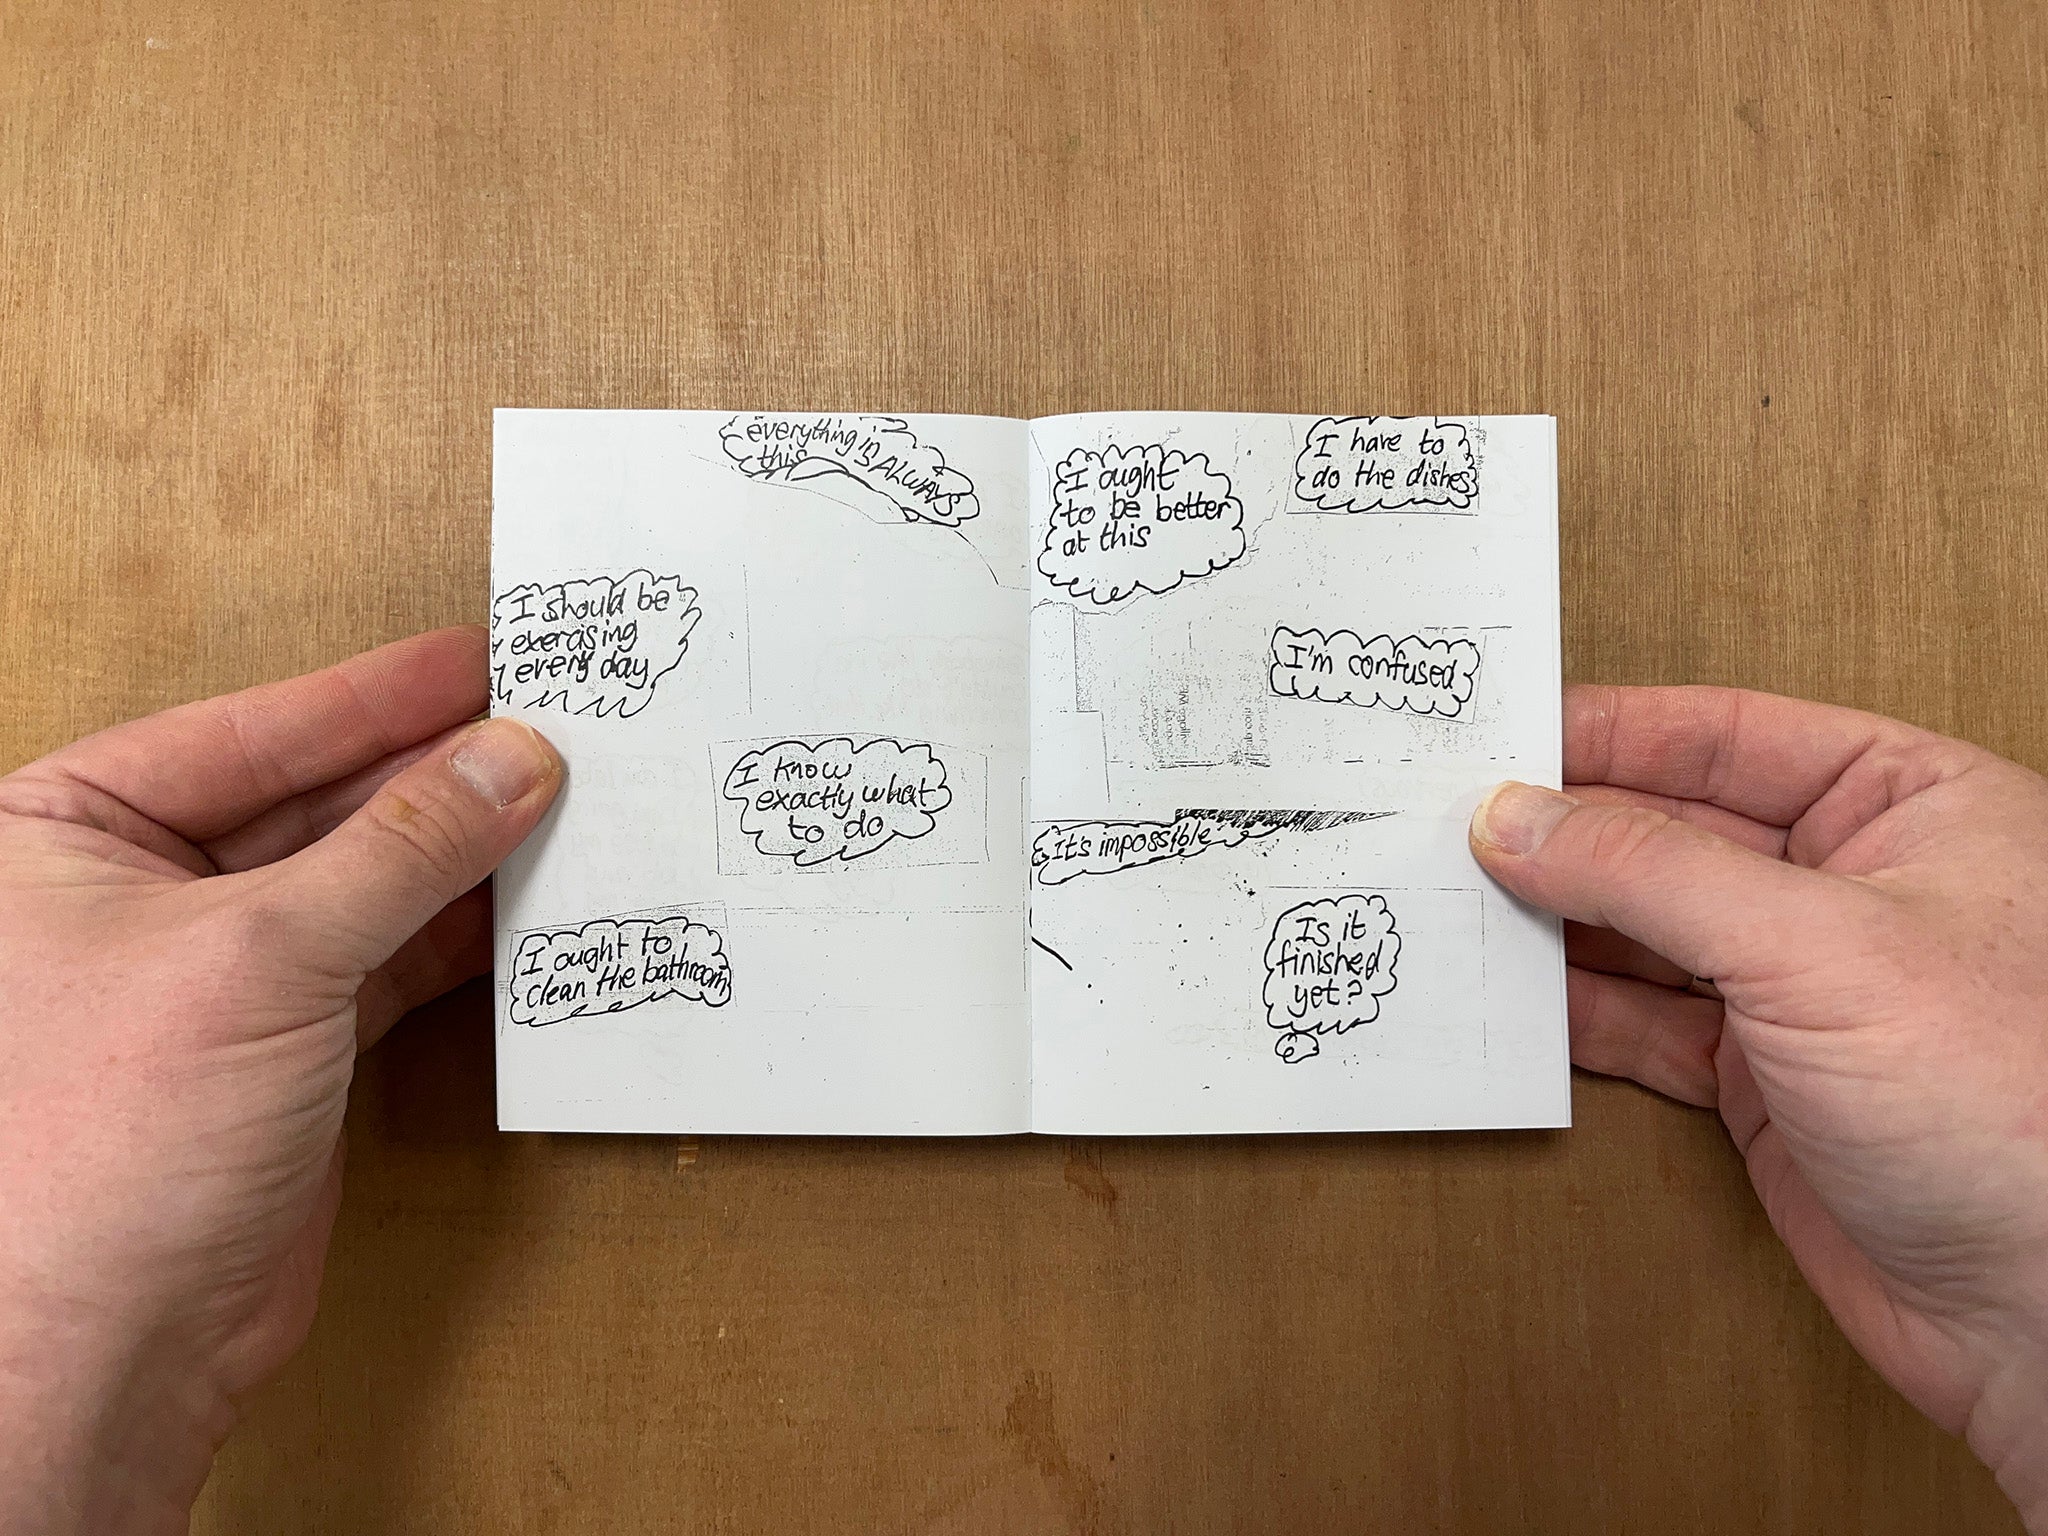 everything is
this ALWAYS
I should be
exercising
every day
I know
exactly what
to do
I ought to
clean the bathroom
I ought
to be better
at this
I have to
do the dishes
I'm confused
It's impossible
Is it
finished
yet?